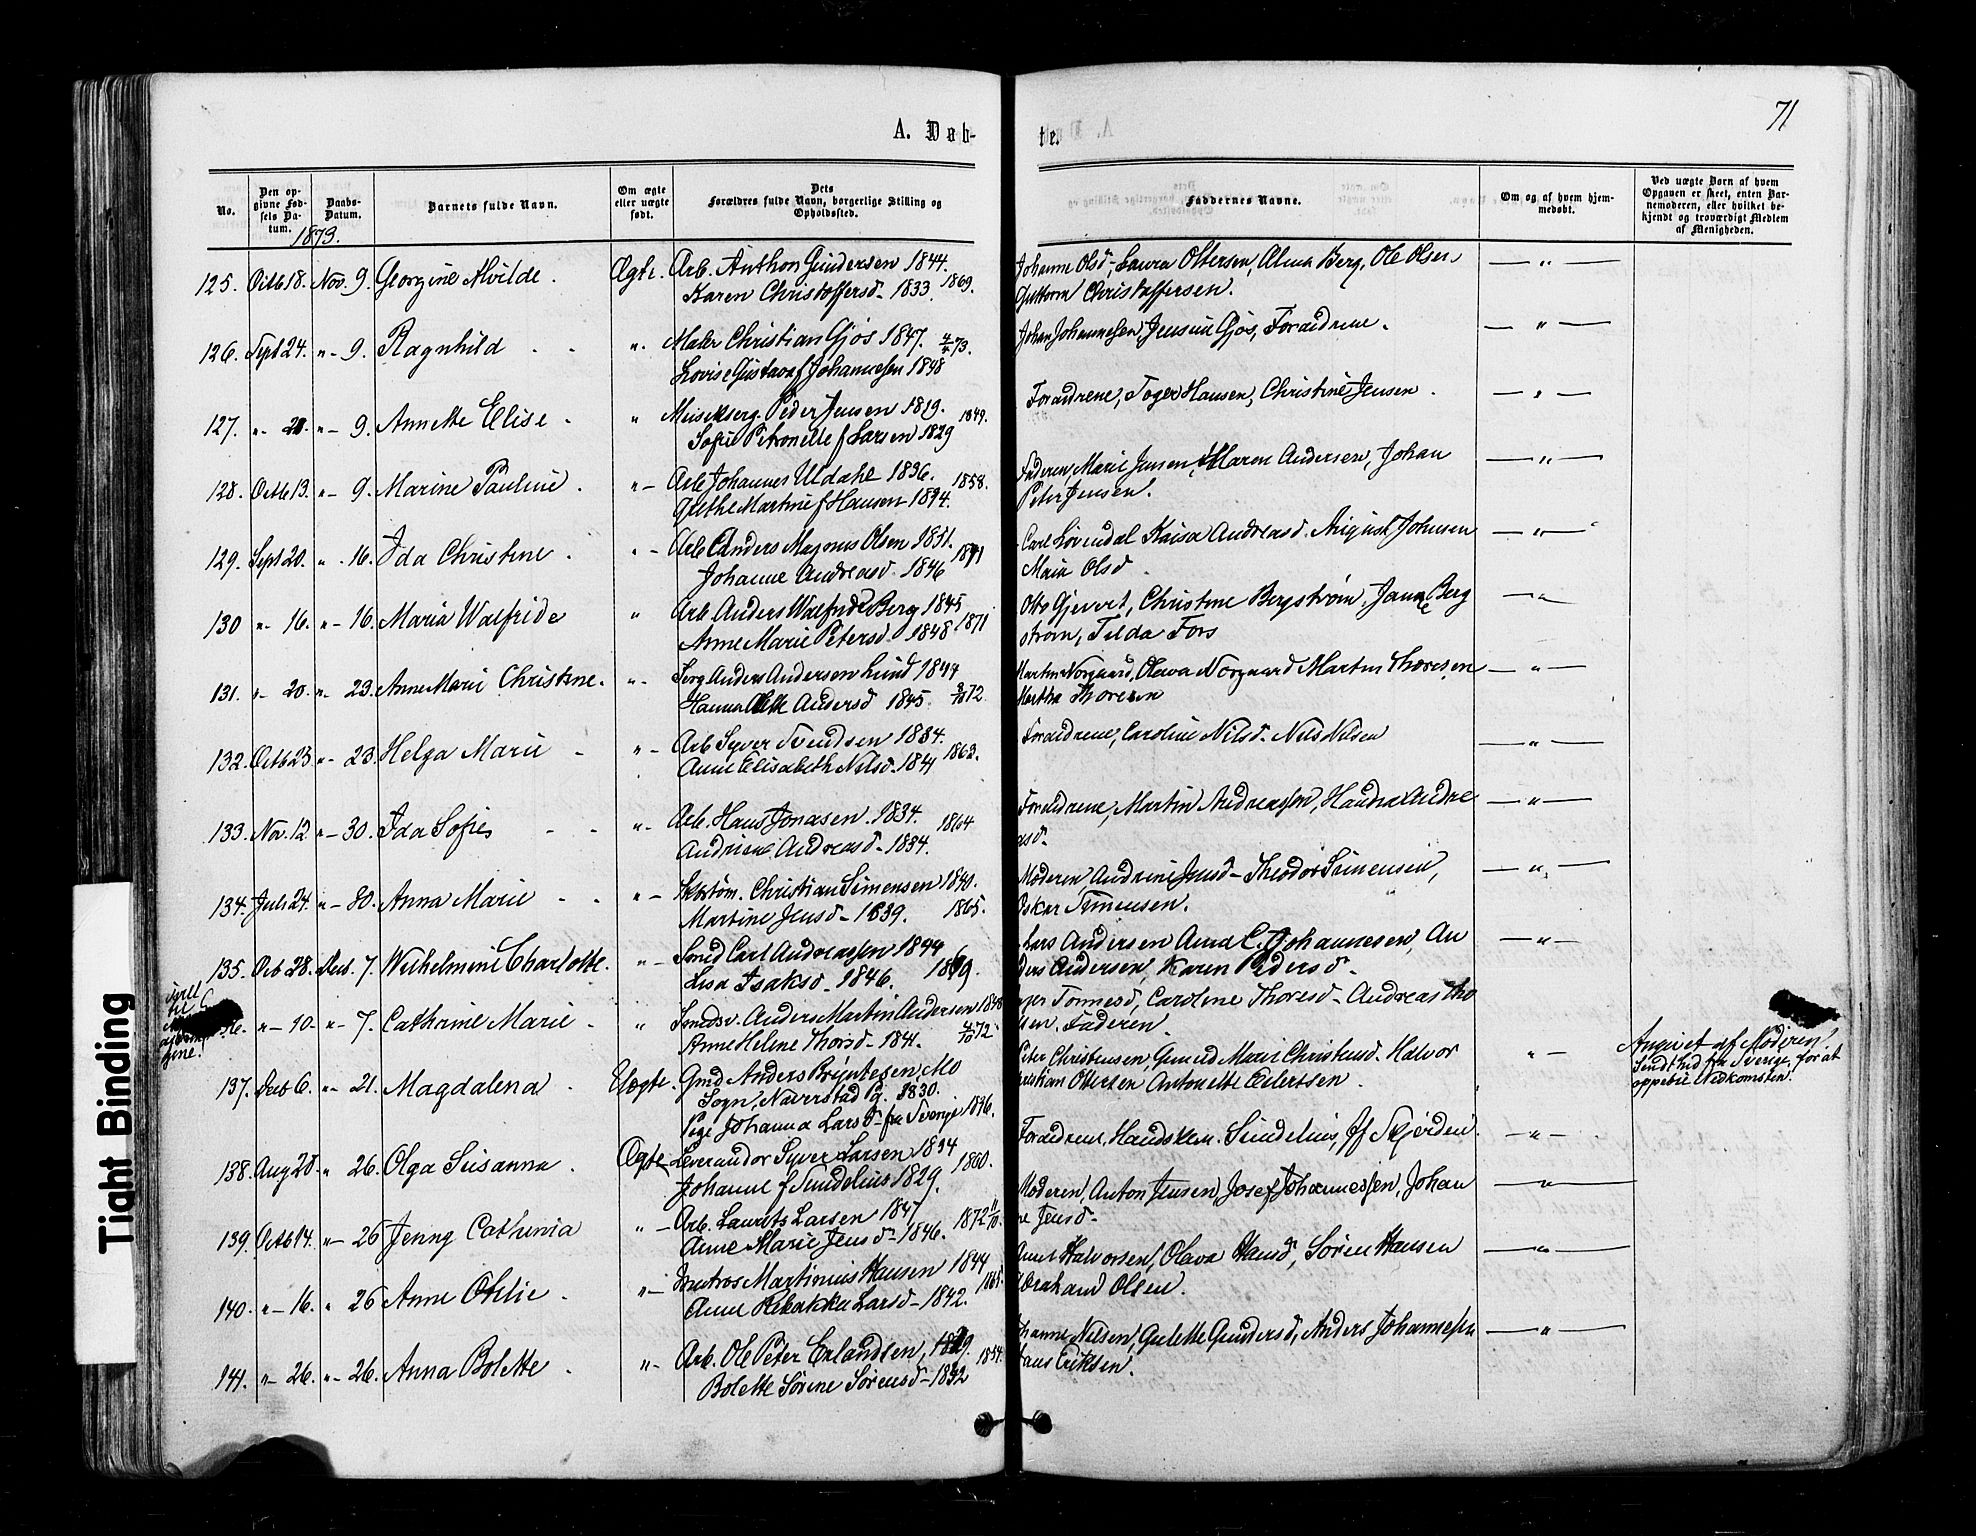 71
A. Døb-
te.
No.
Den op-
givne Fød-
sels Da-
tum.
Daabs-
Datum.
Barnets fulde Navn.
Om ægte
eller uægte
født.
Dets
Forældres fulde Navn, borgerlige Stilling og
Opholdssted.
Faddernes Navne.
Om og af hvem hjem-
medøbt.
Ved uægte Børn af hvem
Opgaven er skeet, enten Bar-
nemoderen, eller hvilket be-
kjendt og troværdigt Medlem
af Menigheden.
1873.
125. Octb 18. Nov. 9. Georgine Ægte. Arb. Anthon Gundersen 1844.
Karen Christoffersd. 1833. 1869.
Johanne Olsd, Laura Ottersen, Alma Berg, Ole Olsen
Guttorm Christoffersen. — " —
126. Sept 24. " — 9. Ragnhild " Maler Christian Gjøs 1847. 73.
Lovise Gustava f Johannesen 1848
Johan Johannesen, Jensine Gjøs, Forældrene. — " —
127. " — 28. " — 9. Annette Elise " Musikserg. Peder Jensen 1819. 1849.
Sofie Petronelle f Larsen 1829
Forældrene, Toger Hansen, Christine Jensen. — " —
128. Octb 13. " — 9. Marine Pauline. " — Arb Johannes Uldahl 1836. 1858.
Grethe Martine f Hansen 1834.
Faderen, Marie Jensen, Maren Andersen, Johan
Peter Jensen. — " —
129. Sept 20. " — 16. Ida Christine. " — Arb Anders Magnus Olsen 1851.
Johanne Andreasd. 1846 1871
Carl Løvendal Kaisa Andreasd. August Johnsen
Maria Olsd. — " —
130 " — 16. " — 16. Maria Walfride " Arb. Anders Walfrid Berg 1845
Anne Marie Petersd. 1848 1871
Otto Gjevert, Christine Bergstrøm, Janne Berg
strøm, Tilda Fors — " —
131. " — 20. " — 23. Anne Marie Christine. " — Serg Anders Andersen Lund 1844
Hanna Andersd 1845. 72
Martin Norgaard, Olava Norgaard Martin Thoresen
Martha Thoresen — " —
132. Octb 23 " — 23. Helga Marie " — Arb Syver Svendsen 1834.
Anne Elisabeth Nilsd. 1841 1863.
Forældrene, Caroline Nilsd. Nils Nilsen — " —
133. Nov. 12 " — 30. Ida Sofie " — Arb. Hans Jonasen. 1834. 1864
Andrine Andreasd. 1834.
Forældrene, Martin Andreassen, Handra Andre
asd. — " —
134. Juli 24. " — 30. Anna Marie " — Christian Simensen 1840.
Martine Jensd. 1839. 1865.
Moderen Andrine Jensd. Theodor Simensen,
Oskar Simensen. — " —
135. Octb 28. Decb. 7. Wilhelmine Charlotte. " — Smed Carl Andreassen 1844
Lisa Isaksd. 1846. 1869.
Lars Andersen Anna C. Johannesen, An
ders Andersen, Karen Pedersd. — " —
" — 10. " — 7. Cathrine Marie. " Smedsv. Anders Martin Andersen 1848
Anne Helene Thorsd. 1841. 72
Tonnesd, Caroline Thoresd. Andreas Tho
sen. Faderen.
137. Decb 6. " — 21. Magdalena. Uægte. Gmd Anders Bryntesen, Mo
Sogn, Naverstad Pg. 1830.
Pige Johanna Larsd. fra Sverige 1836.
Peter Christensen, Marie Christensd. Halvor
Christian Ottersen Antonette Eilertsen. " —
Angivet af Moderen,
Sendt hid fra Sverige, for at
oppebie Nedkomsten.
138. Aug 28. " 26. Olga Susanna. Ægte Leverandør Syver Larsen 1834
Johanne f Sundelius 1829. 1860.
Forældrene, Handskem. Sundelius, Jf Skjørdin. " —
139. Octb 14. " — 26 Jenny Cathinia " — Arb. Laurits Larsen 1847
Anne Marie Jensd. 1846. 1872
Moderen, Anton Jensen, Josef Johannessen, Johan
ne Jensd. — " —
140. " — 16. " 26 Anne Othilie. " — Martinius Hansen 1844
Anne Rebekka Larsd. 1842. 1865.
Halvorsen, Olava Hansd, Søren Hansen
Abraham Olsen. — " —
141. " — 26. " — 26. Anna Bolette. " — Arb. Ole Peter Erlandsen, 1829. 1854.
Bolette Sørine Sørensd. 1832
Johanne Nilsen, Gulette Gundersd, Anders Johannesen
Hans Eriksen. — " —
Tight Binding